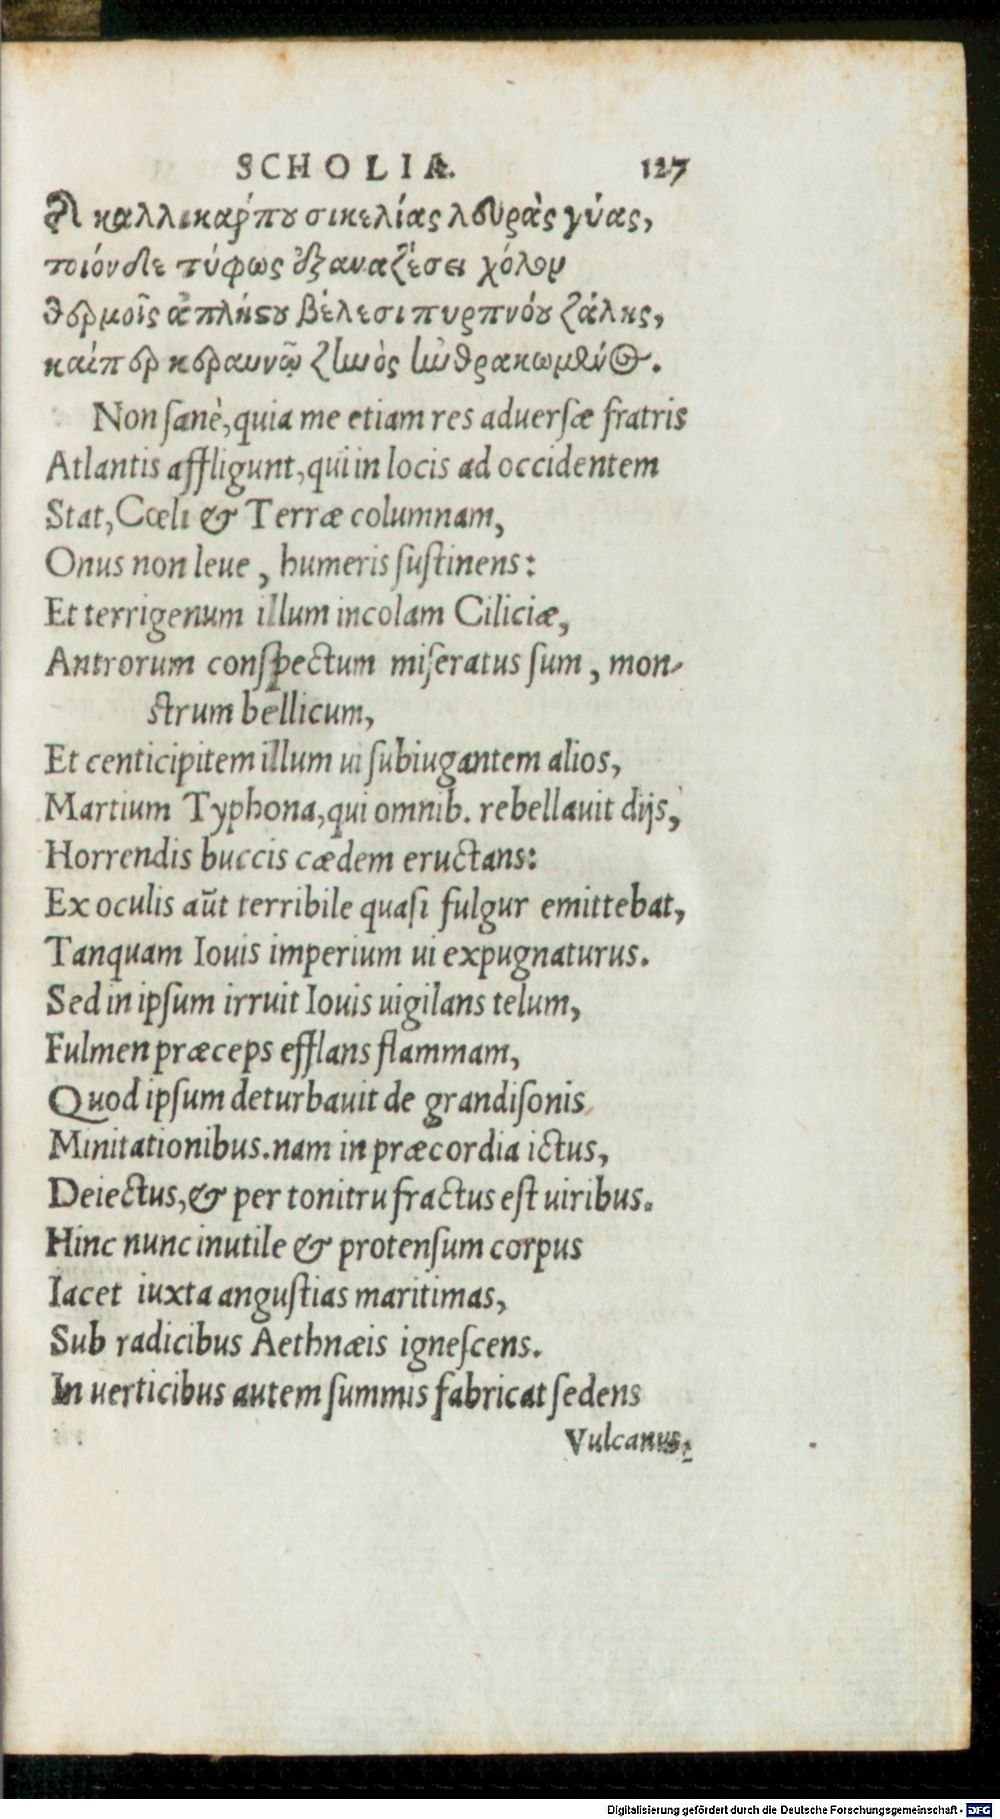 SCHOLIA. 127
Τῆ καλλικάρπου σικελίας λευρὰς γύας,
τοιόνδε τύφως ἐξαναζέσει χόλον
θερμοῖς ἀπλήστου βέλεσι πυρπνόου ζάλης,
καίπερ κεραυνῷ ζηνὸς ἠνθρακωμένος.
Non sanè, quia me etiam res aduersæ fratris
Atlantis affligunt, qui in locis ad occidentem
Stat, Cœli & Terræ columnam,
Onus non leue, humeris sustinens:
Et terrigenum illum incolam Ciliciæ,
Antrorum conspectum miseratus sum, mon-
strum bellicum,
Et centicipitem illum ui subiugantem alios,
Martium Typhona, qui omnib. rebellauit dijs,
Horrendis buccis cædem eructans:
Ex oculis aūt terribile quasi fulgur emittebat,
Tanquam Iouis imperium ui expugnaturus.
Sed in ipsum irruit Iouis uigilans telum,
Fulmen præceps efflans flammam,
Quod ipsum deturbauit de grandisonis
Minitationibus. nam in præcordia ictus,
Deiectus, & per tonitru fractus est uiribus.
Hinc nunc inutile & protensum corpus
Iacet iuxta angustias maritimas,
Sub radicibus Aethnæis ignescens.
In uerticibus autem summis fabricat sedens
Vulcanus,
Digitalisierung gefördert durch die Deutsche Forschungsgemeinschaft - DFG